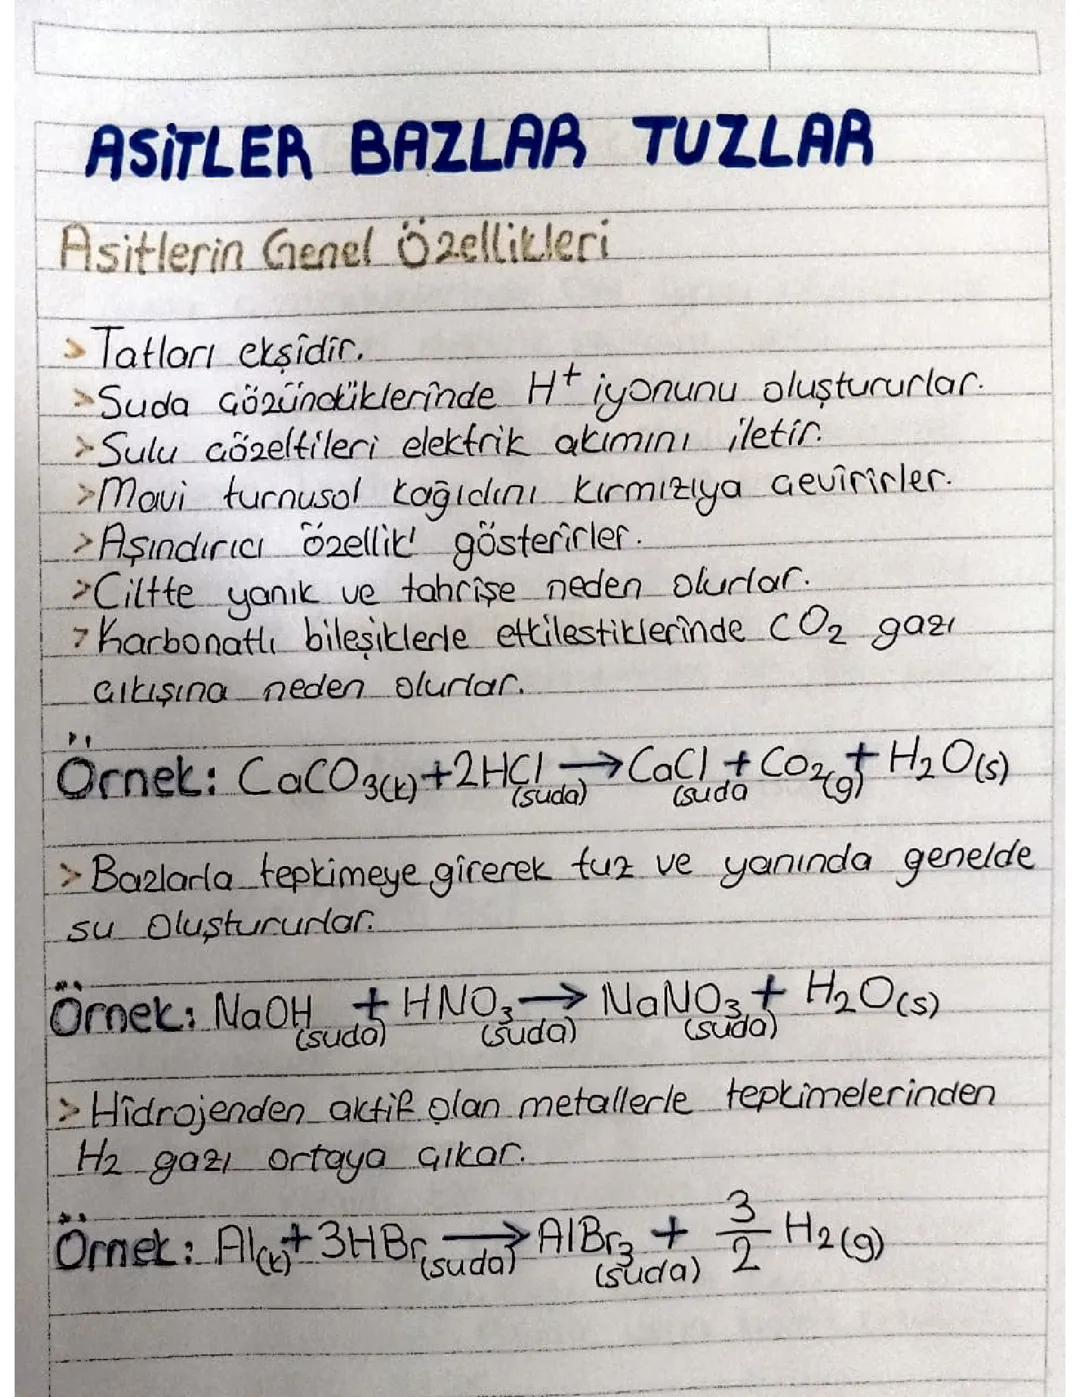 ASİTLER BAZLAR TUZLAR
Asitlerin Genel Özellikleri
> Tatları ekşidir.
> Suda çözündüklerinde H⁺ iyonunu oluştururlar.
> Sulu çözeltileri elektrik akımını iletir.
> Mavi turnusol kağıdını kırmızıya çevirirler.
> Aşındırıcı özellik gösterirler.
> Ciltte yanık ve tahrişe neden olurlar.
> Karbonatlı bileşiklerle etkilestiklerinde CO₂ gazı
çıkışına neden olurlar.
Örnek: CaCO₃(k) + 2HCl (suda) → CaCl (suda + CO₂(g) + H₂O(s)
> Bazlarla tepkimeye girerek tuz ve yanında genelde
su oluştururlar.
Örnek: NaOH (suda) + HNO₃ (suda) → NaNO₃ (suda) + H₂O(s)
> Hidrojenden aktif olan metallerle tepkimelerinden
H₂ gazı ortaya çıkar.
Örnek: Al(k) + 3HBr (suda) → AlBr₃ (suda) + 3/2 H₂(g)